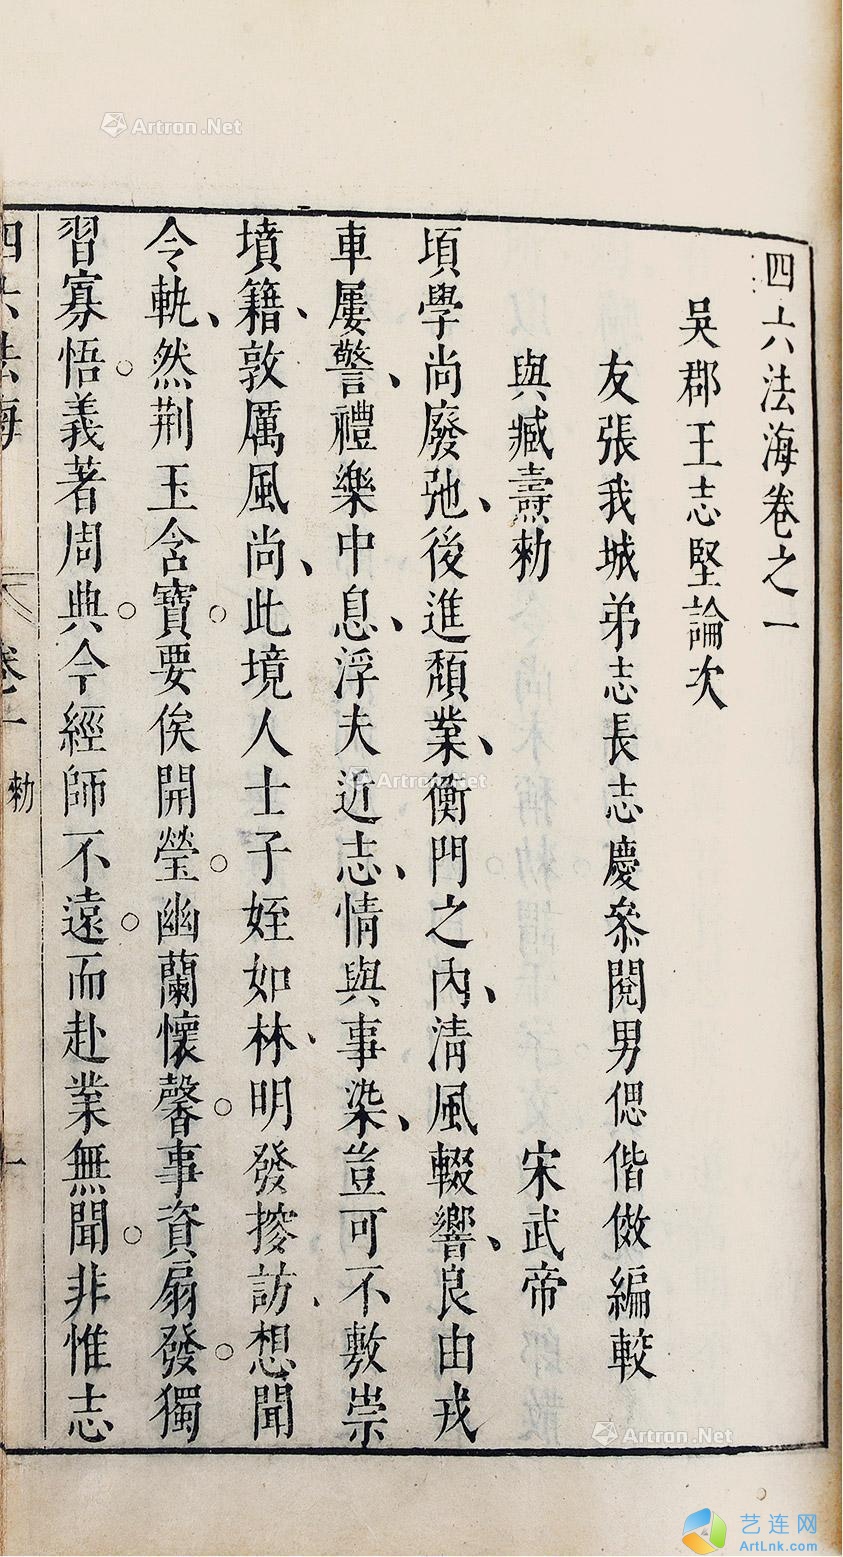 四六法海卷之一
吳郡王志堅論次
友張我城弟志長志慶叅閱男偲偕倣編較
與臧燾勑　宋武帝
頃學尚廢弛、後進頹業、衡門之內、清風輟響、良由戎
車屢警、禮樂中息、浮夫近志、情與事染、豈可不敷崇
墳籍、敦厲風尚、此境人士子姪如林、明發搜訪、想聞
令軌、然荆玉含寶○要俟開瑩○幽蘭懷馨○事資扇發○獨
習寡悟○義著周典○今經師不遠○而赴業無聞○非惟志
四六法海　卷一　勑　一
Artron.Net
Artron.Net
Artron.Net
艺连网
ArtLnk.com